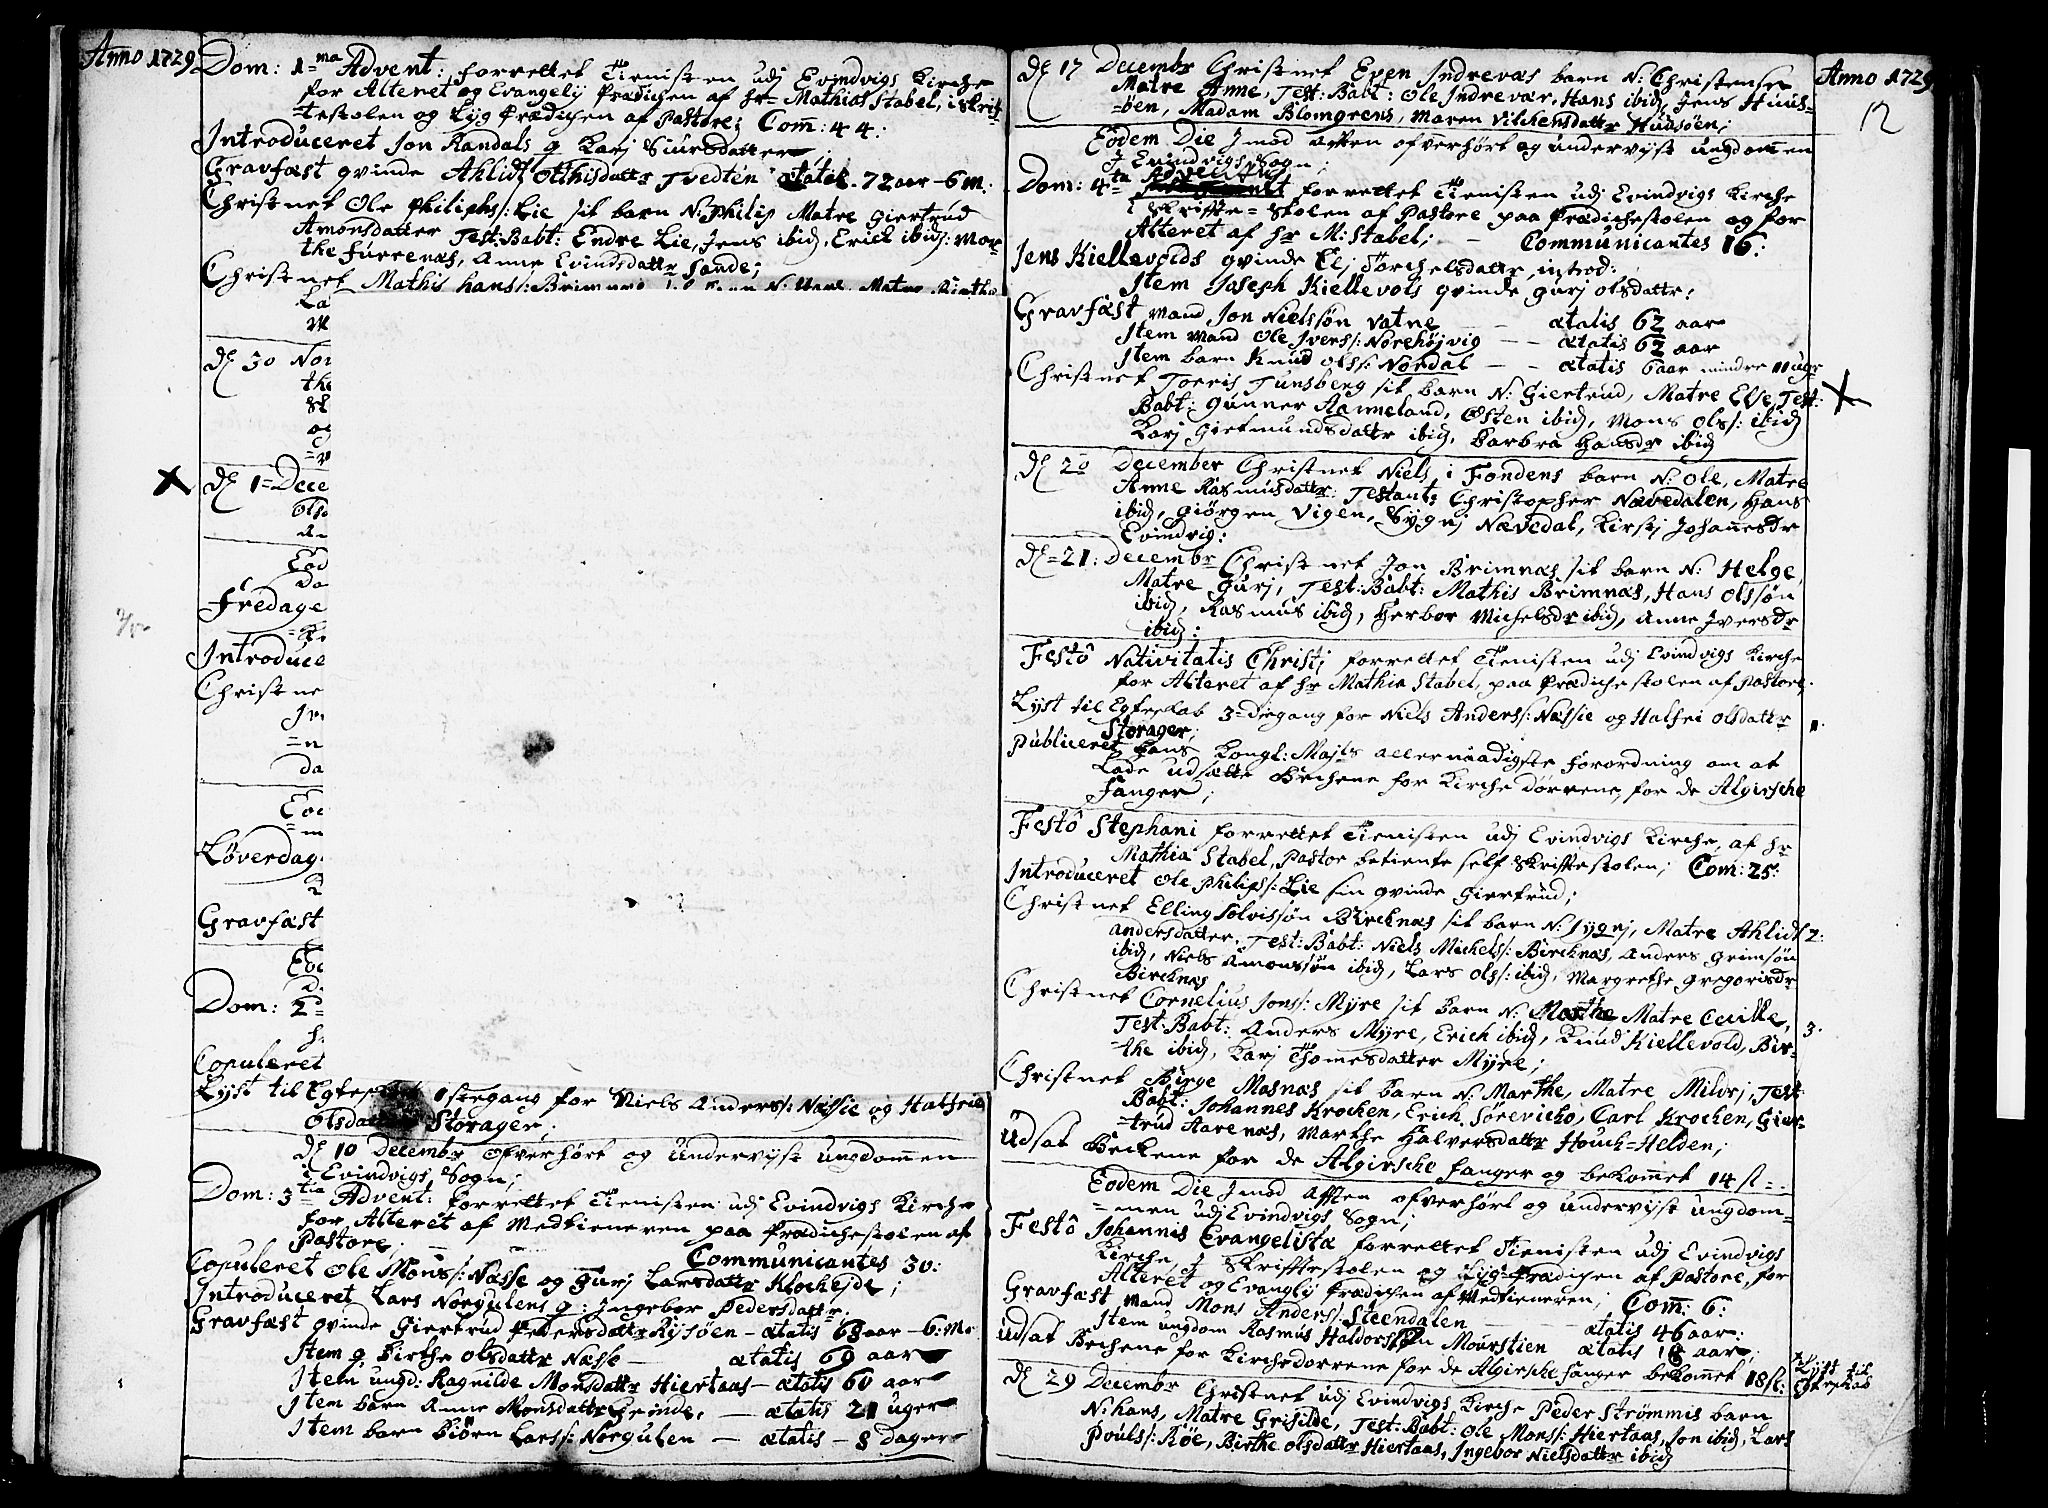 Anno 1729
Dom: 1=ma Advent: forrettet Tienisten udj Evindvigs Kirche
for Alteret og Evangelij Prædichen af hr Mathias Stabel, i Skrif-
testolen og Lijg Prædichen af Pastore; Com: 44:
Introduceret Jon Randals q Karj Siursdatter
Gravfæst qvinde Ahlidt Otthisdattr Tvedten ætatis 72 aar - 6 m:
Christnet Ole Philiphs/: Lie sit barn N: Philip Matre Giertrud
Amonsdatter Test: Babt: Endre Lie, Jens ibid, Erich ibid: Mar-
the Furrenæs, Anne Evindsdattr Sande;
Christnet Mathis hans/: Brimnes
La
M
d 30 Nov
the
Sk
og
d 1=Dece
Olsd
Eod
Da
Fredage
Introduce
Christne
Iv
=n
da
Eod
=m
Løverdag
Gravfæst
Eod
Dom: 2=
Copuleret
Lyst til Egteskab 1ste gang for Niels Anders/: Næssie og Halfrie
Olsdatter Storager;
d 10 Decembr ofverhørt og undervijst ungdommen
i Evindvigs Sogn;
Dom: 3tia Advent: forrettet Tienisten udj Evindvigs Kirche
for Alteret af Medtieneren paa Prædichestolen af
Pastore, Communicantes 30:
Copuleret Ole Mons/: Næsse og Gurj Larsdattr Klochejde;
Introduceret Lars Norgulens q: Ingebor Pedersdattr.
Gravfæst qvinde Giertrud Pedersdattr Rysøen - ætatis 68 aar - 6: Mo
Item q Birthe Olsdattr Næsse - ætatis 69 aar
Item ungd: Ragnilde Monsdattr Hiertaas - ætatis 60 aar
Item barn Anne Monsdattr Grinde, - ætatis 21 uger
Item barn Biørn Larss/: Norgulen - ætatis - 8 Dager
Anno 1729
12
d 17 Decembr Christnet Even Indrevæs barn N: Christense
Matre Anne, Test: Babt: Ole Indrevær, Hans ibid, Jens Huus-
øen, Madam Blomgrens, Maren Vilchensdattr Huusøen;
Eodem Die Imod Aften ofverhørt og undervijst ungdommen
I Evindvigs Sogn;
Dom: 4ta Adventus forrettet Tienisten udj Evindvigs Kirche
i Skrifte=Stolen af Pastore paa Prædichestolen og for
Alteret af hr M: Stabel; - Communicantes 16:
Jens Kiellevolds qvinde Elj Torchelsdattr introd:
Item Joseph Kiellevols qvinde Gurj Olsdattr:
Gravfæst mand Jon Nielssøn Vatne - - ætatis 62 aar
Item Mand Ole Ivers/: Norehøjvig - - ætatis 62 aar
Item barn Knud Ols/: Nordal - - ætatis 6 aar mindre 11 ugr
Christnet Torris Tunsberg sit barn N: Giertrud, Matre Else, Test:
Babt: Gunner Aanneland, Østen ibid, Mons Ols/: ibid
Karj Giermundsdattr ibid, Barbra Hansdr ibid
d 20 December Christnet Niels i Fondens barn N: Ole, Matre
Anne Rasmusdattr: Testants Christopher Nævedalen, Hans
ibid, Giørgen Vigen, Sygnj Nævedal, Kirstj Johannesdr
Evindvig:
d=21: Decembr Christnet Jon Brimnæs sit barn N: Helge,
Matre Gurj, Test: Babt: Mathis Brimnæs, Hans Olssøn
ibid, Rasmus ibid, Herbor Michelsdr ibid, Anne Iversdr
ibid:
Festô Nativitatis Christj forrettet Tienisten udj Evindvigs Kirche
for Alteret af hr Mathia Stabel, paa Prædichestolen af Pastore.
Lyst til Egteskab 3=die gang for Niels Anders/: Næssie og Halfri Olsdattr 1.
Storager;
Publiceret Hans Kongl: Majts allernaadigste forordning om at
Lade udsætte Bechene for Kirche dørrene, for de Algirsche
Fanger;
Festô Stephani forrettet Tienisten udj Evindvigs Kirche, af hr
Mathia Stabel, Pastor betiente self Skriftestolen; Com: 25:
Introduceret Ole Philips/: Lie sin qvinde Giertrud;
Christnet Elling Solvissøn Bircknæs sit barn N: Sygnj, Matre Ahlidt 2:
Andersdatter, Test: Babt: Niels Michels/: Bircknæs, Anders Grimsøn
ibid, Niels Amonssøn ibid, Lars Ols/: ibid, Margrethe Gregorisdr
Bircknæs
Christnet Cornelius Jons/: Myre sit barn N: Marthe Matre Cecille, 3.
Test: Babt: Anders Myre, Erich ibid, Knud Kiellevold, Bir-
the ibid, Karj Thomesdatter Myre;
Christnet Børge Masnæs sit barn N: Marthe, Matre Milvrj, Test:
Babt: Johannes Krochen, Erich Sørevicho, Carl Krochen, Gier-
trud Aarenæs, Marthe Halversdattr Houch=Helden;
Udsat Beckene for de Algirsche fanger og bekommet 14 sl=
Eodem Die Imod Aften ofverhørt og undervijst ungdom-
=men udj Evindvigs Sogn;
Festô Johannis Evangelistæ forrettet Tienisten udj Evindvigs
Kirche, J Skriftestolen og Lijg=Prædichen af Pastore, for
Alteret og Evanglij Prædichen af Medtieneren; Com: 6:
Gravfæst mand Mons Anders/: Steendalen - - ætatis 46 aar:
Item ungdom Rasmus Haldorssøn Mourstien ætatis 18 aar,
udsat Bechene for Kirchedorrene for de Algirsche fanger bekommet 18 sl:
Lyst til
Egteskab
d 29 Decembr Christnet udj Evindvigs Kirche Peder Strømmis barn
N: hans, Matre Grisilde, Test: Babt: Ole Mons/: Hiertaas, Jon ibid, Lars
Pouls/: Røe, Birthe Olsdattr Hiertaas, Ingebor Nielsdattr ibid